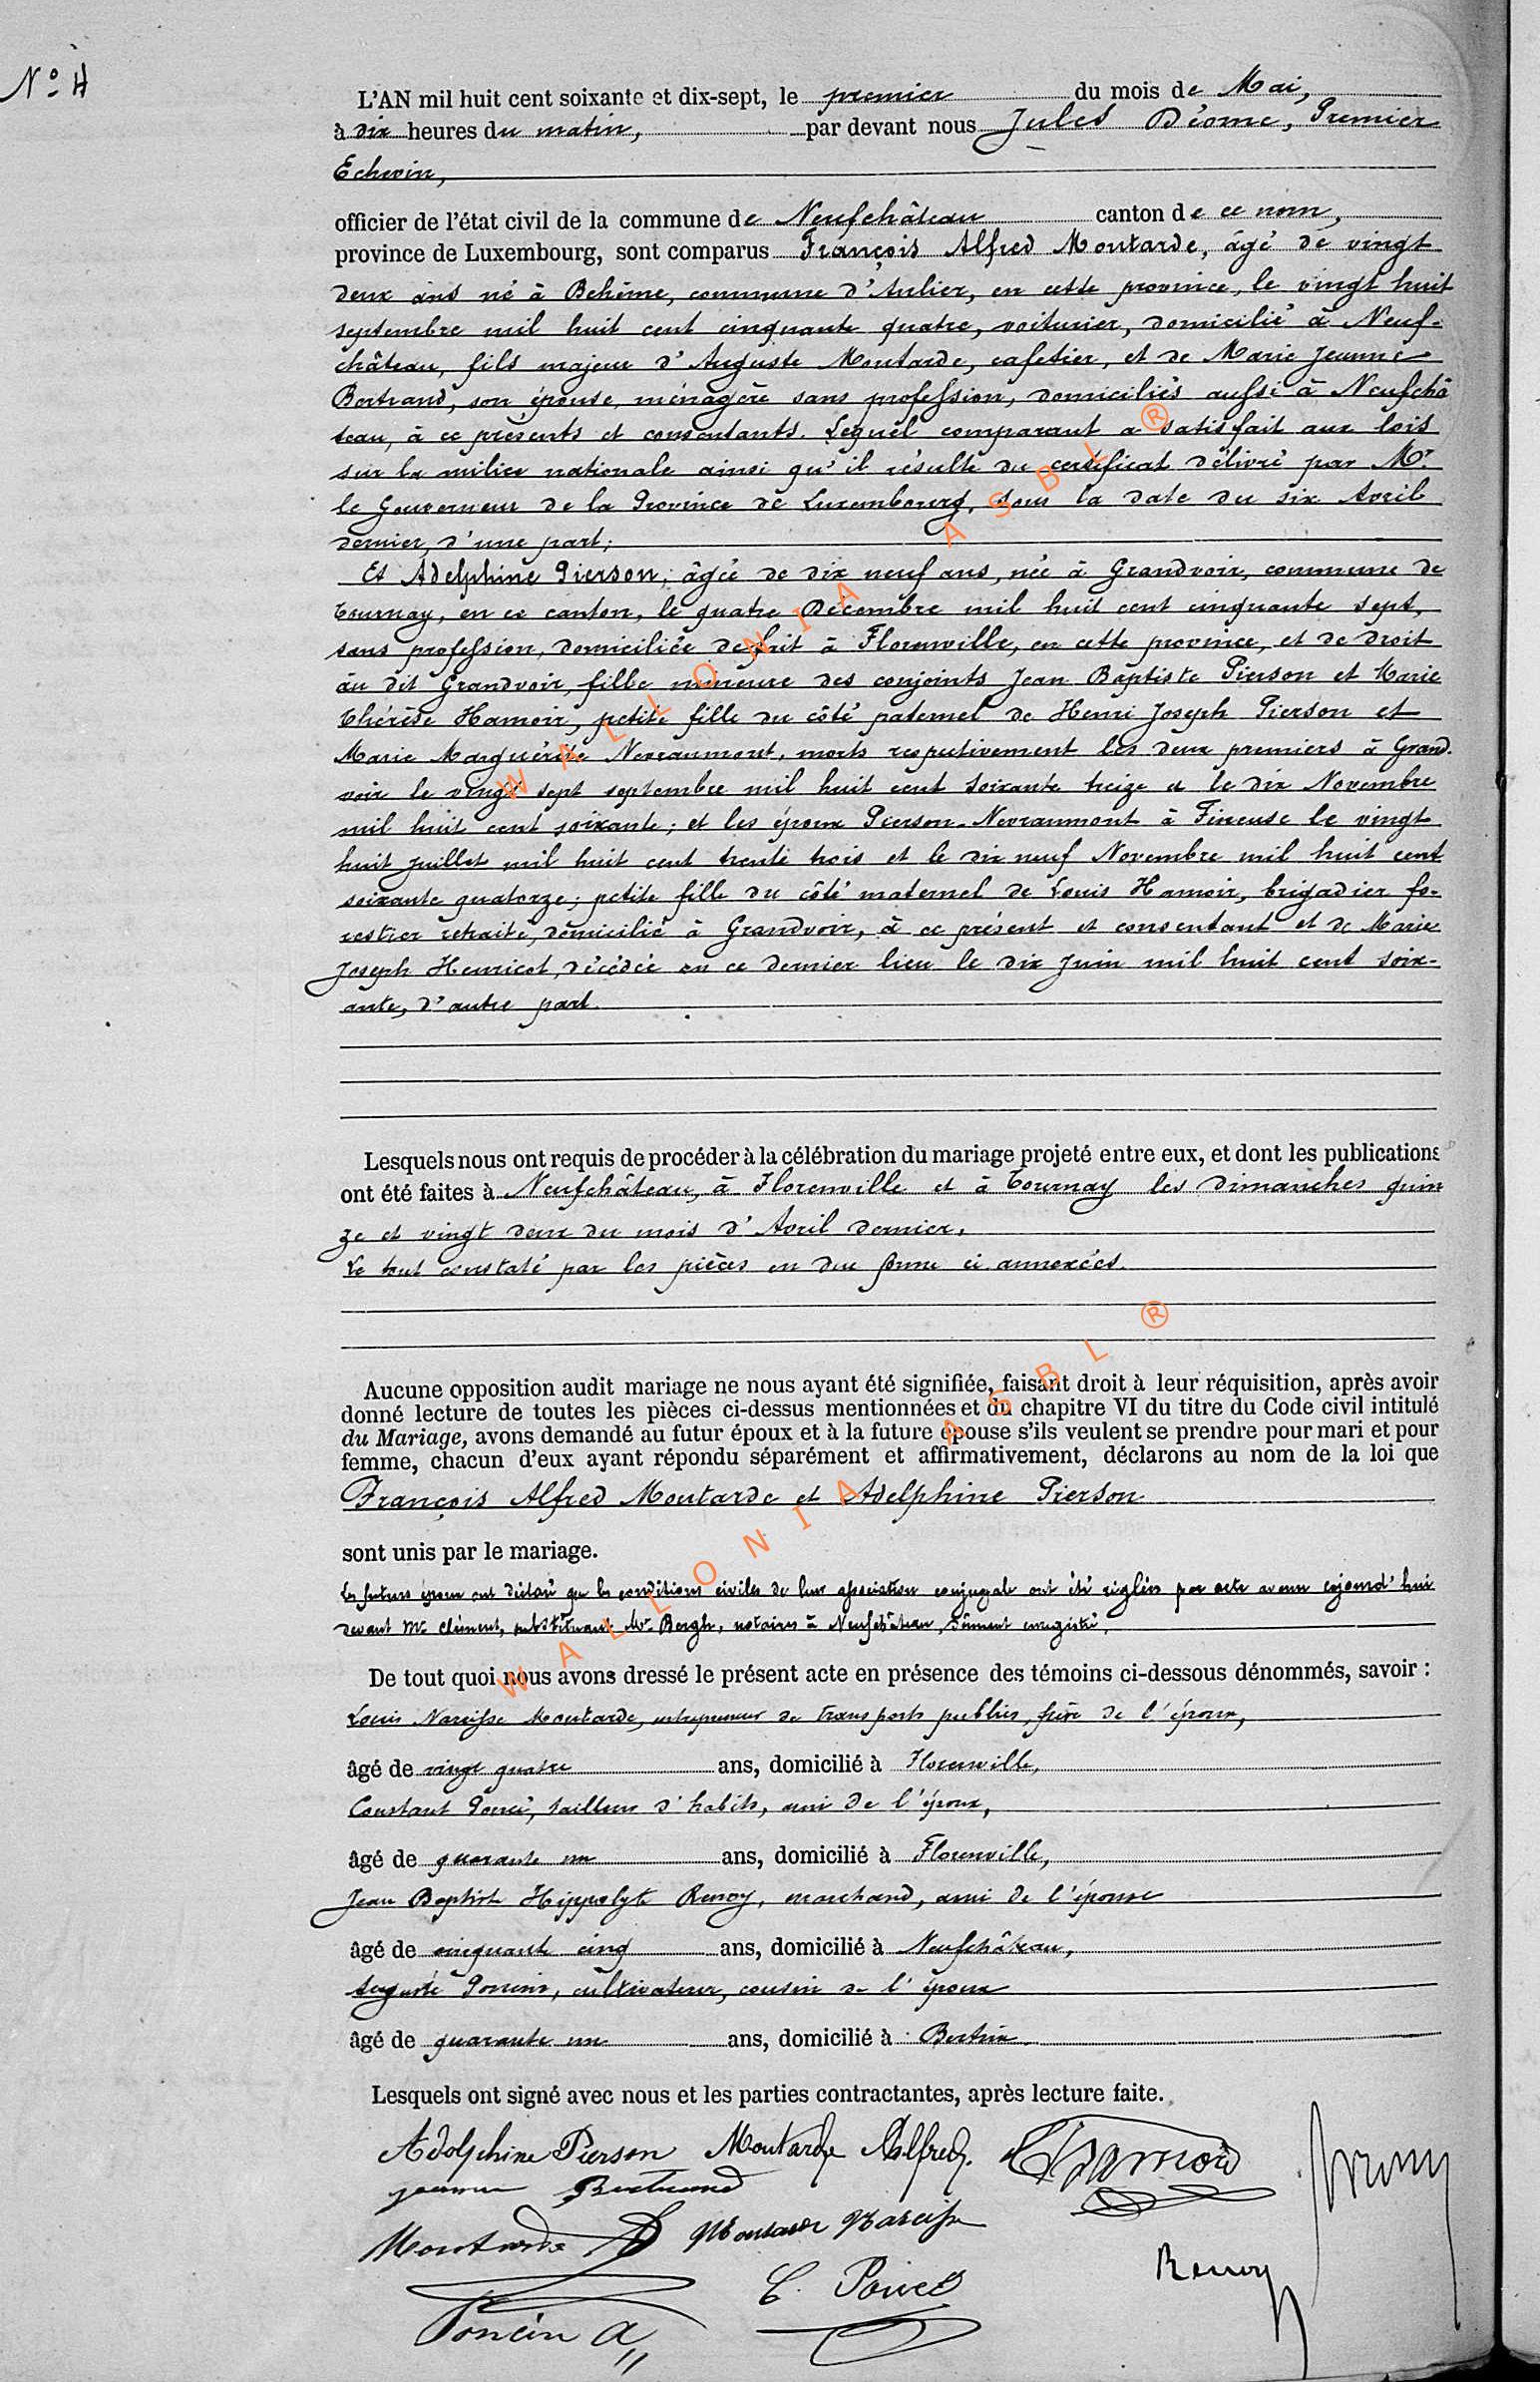 Nº 4
L'AN mil huit cent soixante et dix-sept, le premier du mois de Mai,
à dix heures du matin, par devant nous Jules Déome, Premier
Echevin,
officier de l'état civil de la commune de Neufchâteau canton de ce nom,
province de Luxembourg, sont comparus François Alfred Moutarde, âgé de vingt
deux ans né à Behême, commune d'Anlier, en cette province, le vingt huit
septembre mil huit cent cinquante quatre, voiturier, domicilié à Neuf-
château, fils majeur d'Auguste Moutarde, cafetier, et de Marie Jeanne
Bertrand, son épouse, ménagère sans profession, domiciliés aussi à Neufchâ
teau, à ce présents et consentants. Lequel comparant a satisfait aux lois
sur la milice nationale ainsi qu'il résulte du certificat délivré par Mr
le Gouverneur de la Province de Luxembourg, sous la date du six Avril
dernier, d'une part;
Et Adelphine Pierson, âgée de dix neuf ans, née à Grandvoir, commune de
Tournay, en ce canton, le quatre Décembre mil huit cent cinquante sept,
sans profession, domiciliée de fait à Florenville, en cette province, et de droit
au dit Grandvoir, fille mineure des conjoints Jean Baptiste Pierson et Marie
Thérèse Hamoir, petite fille du côté paternel de Henri Joseph Pierson et
Marie Marguérite Nevraumont, morts respectivement les deux premiers à Grand-
voir le vingt sept septembre mil huit cent soixante treize et le dix Novembre
mil huit cent soixante; et les époux Pierson-Nevraumont à Fineuse le vingt
huit juillet mil huit cent trente trois et le dix neuf Novembre mil huit cent
soixante quatorze; petite fille du côté maternel de Louis Hamoir, brigadier fo-
restier retraité, domicilié à Grandvoir, à ce présent et consentant et de Marie
Joseph Henricot, décédée en ce dernier lieu le dix Juin mil huit cent soix-
ante, d'autre part.
Lesquels nous ont requis de procéder à la célébration du mariage projeté entre eux, et dont les publications
ont été faites à Neufchâteau, à Florenville et à Tournay les dimanches quin
ze et vingt deux du mois d'Avril dernier.
Le tout constaté par les pièces en due forme ci-annexées.
Aucune opposition audit mariage ne nous ayant été signifiée, faisant droit à leur réquisition, après avoir
donné lecture de toutes les pièces ci-dessus mentionnées et du chapitre VI du titre du Code civil intitulé
du Mariage, avons demandé au futur époux et à la future épouse s'ils veulent se prendre pour mari et pour
femme, chacun d'eux ayant répondu séparément et affirmativement, déclarons au nom de la loi que
François Alfred Moutarde et Adelphine Pierson
sont unis par le mariage.
Les futurs époux ont déclaré que les conditions civiles de leur association conjugale ont été réglées par acte avenu cejourd'hui
devant Me Clément, substituant Me Bergh, notaires à Neufchâteau, dûment enregistré.
De tout quoi nous avons dressé le présent acte en présence des témoins ci-dessous dénommés, savoir :
Louis Narcisse Moutarde, entrepreneur de transports publics, frère de l'époux,
âgé de vingt quatre ans, domicilié à Florenville,
Constant Poncé, tailleur d'habits, ami de l'époux,
âgé de quarante un ans, domicilié à Florenville,
Jean Baptiste Hippolyte Renoy, marchand, ami de l'épouse
âgé de cinquante cinq ans, domicilié à Neufchâteau,
Auguste Poncin, cultivateur, cousin de l'époux
âgé de quarante un ans, domicilié à Bertrix.
Lesquels ont signé avec nous et les parties contractantes, après lecture faite.
Adolphine Pierson Moutarde Alfred. L Hamoir
Jeanne Bertrand
Moutarde A Moutarde Narcisse
C. Poncé Renoy
Poncin A
WALLONIA ASBL ®
WALLONIA ASBL ®